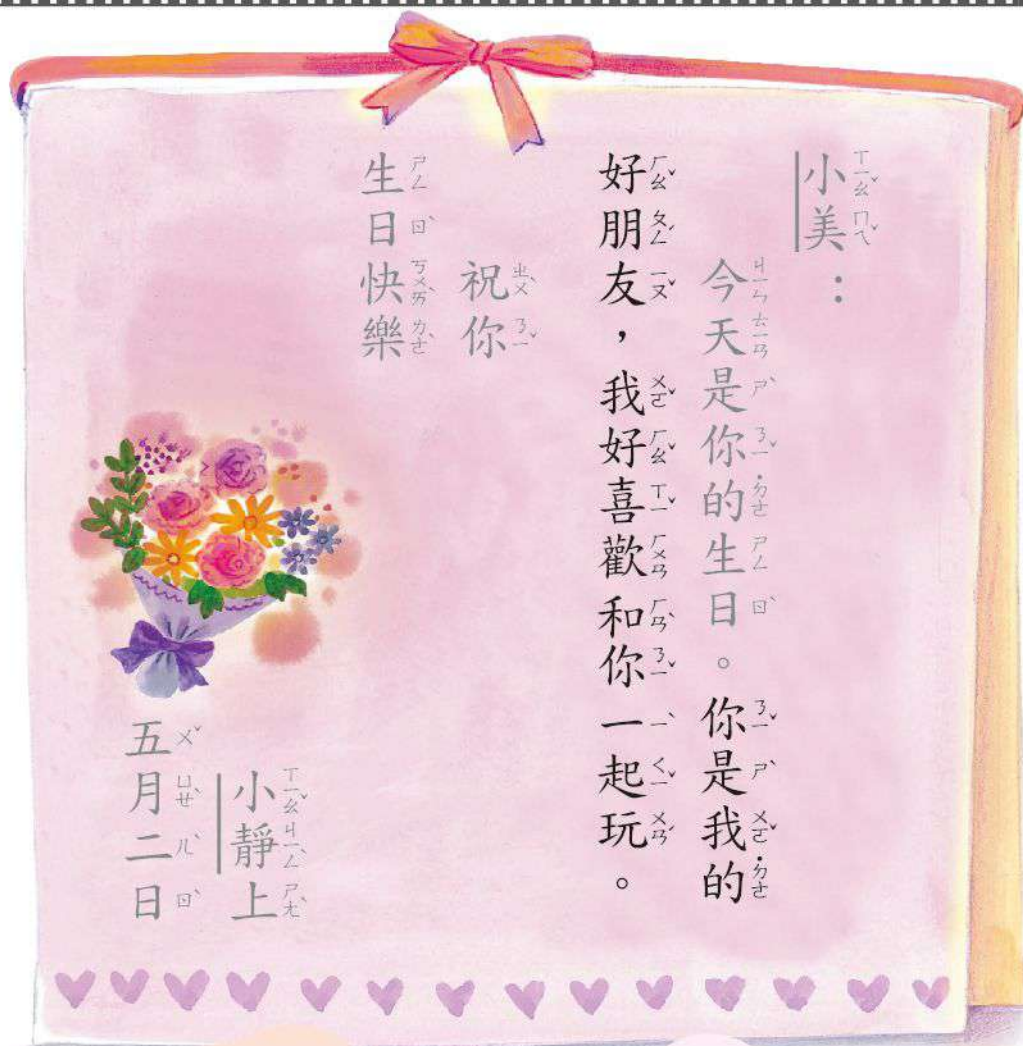 小美：
今天是你的生日。你是我的
好朋友，我好喜歡和你一起玩。
祝你
生日快樂
小靜上
五月二日